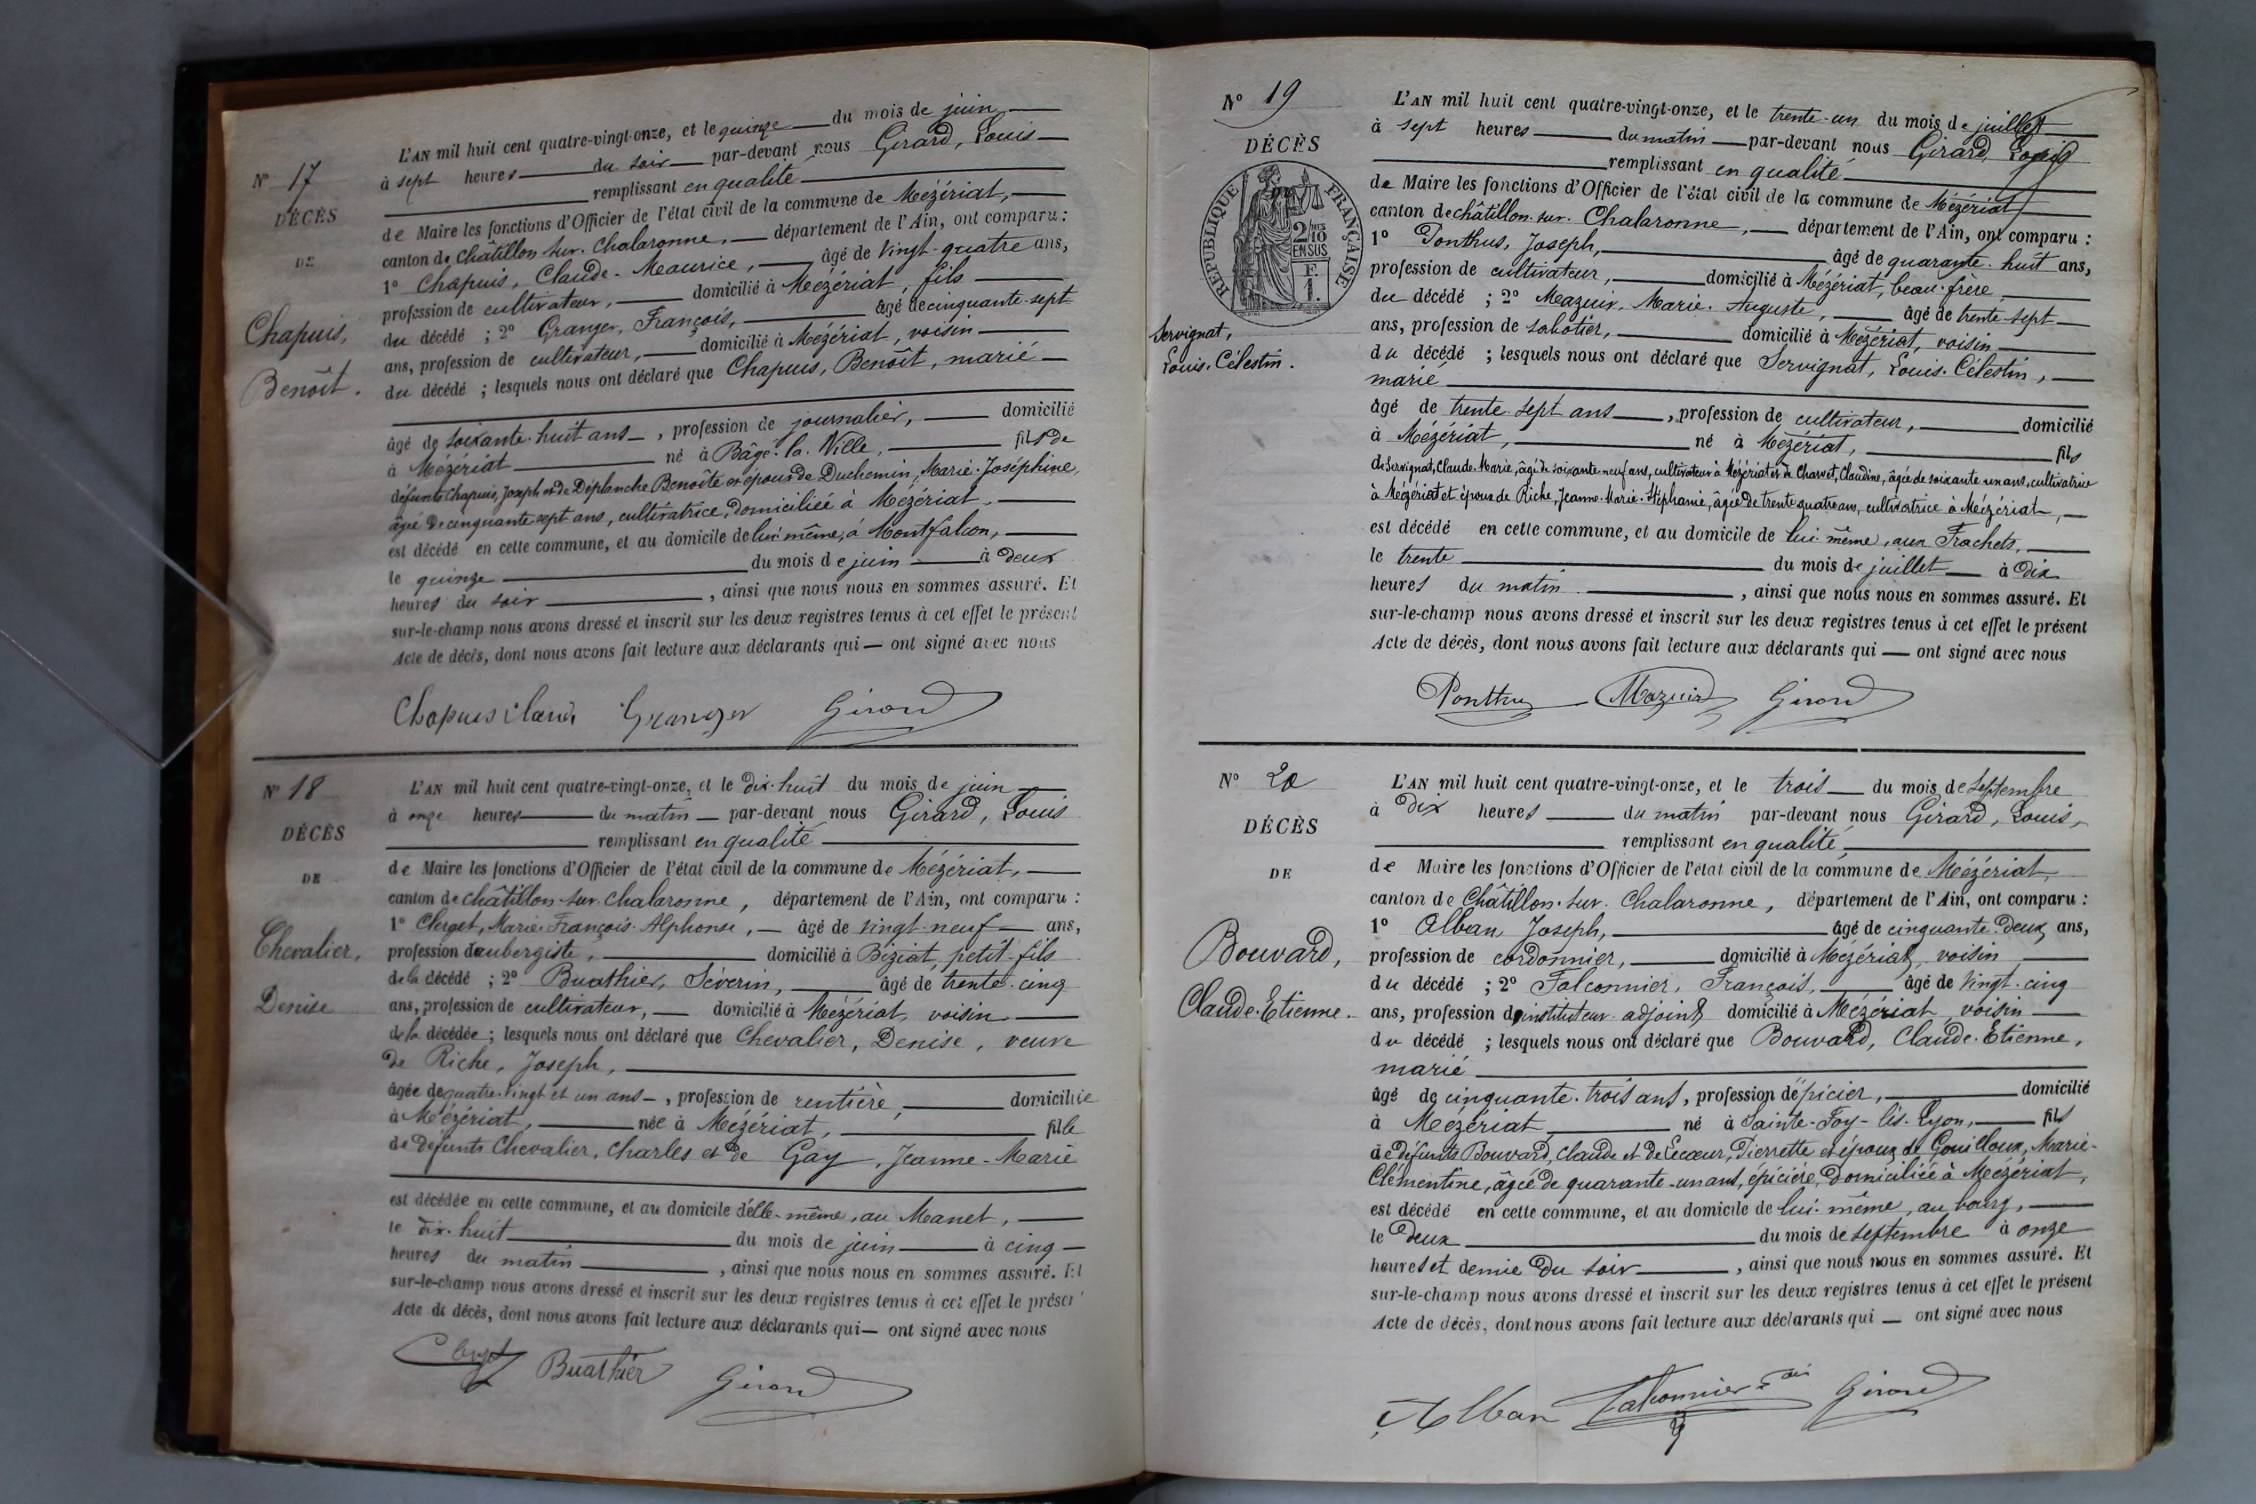 N° 17
DÉCÈS
DE
Chapuis,
Benoît.
L'AN mil huit cent quatre-vingt-onze, et le quinze du mois de juin
à sept heures du soir par-devant nous Girard, Louis
remplissant en qualité
de Maire les fonctions d'Officier de l'état civil de la commune de Mézériat,
canton de Châtillon-sur-Chalaronne, département de l'Ain, ont comparu :
1° Chapuis, Claude-Maurice, âgé de vingt-quatre ans,
profession de cultivateur, domicilié à Mézériat, fils
du décédé ; 2° Granger, François, âgé de cinquante-sept
ans, profession de cultivateur, domicilié à Mézériat, voisin
du décédé ; lesquels nous ont déclaré que Chapuis, Benoît, marié
âgé de soixante-huit ans, profession de journalier, domicilié
à Mézériat né à Bâgé-la-Ville, fils de
défunts Chapuis, Joseph et de Déplanche Benoîte et époux de Duchemin, Marie-Joséphine,
âgée de cinquante sept ans, cultivatrice, domiciliée à Mézériat,
est décédé en cette commune, et au domicile de lui-même, à Montfalcon,
le quinze du mois de juin à deux
heures du soir, ainsi que nous nous en sommes assuré. Et
sur-le-champ nous avons dressé et inscrit sur les deux registres tenus à cet effet le présent
Acte de décès, dont nous avons fait lecture aux déclarants qui — ont signé avec nous
Chapuis Granger Girard
N° 18
DÉCÈS
DE
Chevalier,
Denise
L'AN mil huit cent quatre-vingt-onze, et le dix-huit du mois de juin
à onze heures du matin par-devant nous Girard, Louis
remplissant en qualité
de Maire les fonctions d'Officier de l'état civil de la commune de Mézériat,
canton de Châtillon-sur-Chalaronne, département de l'Ain, ont comparu :
1° Clerget, Marie-François-Alphonse, âgé de vingt-neuf ans,
profession d'aubergiste, domicilié à Biziat, petit-fils
de la décédé ; 2° Buathier, Séverin, âgé de trente-cinq
ans, profession de cultivateur, domicilié à Mézériat, voisin
de la décédée ; lesquels nous ont déclaré que Chevalier, Denise, veuve
de Riche, Joseph,
âgée de quatre-vingt et un ans, profession de rentière, domiciliée
à Mézériat, née à Mézériat, fille
de défunts Chevalier, Charles et de Gay, Jeanne-Marie
est décédée en cette commune, et au domicile d'elle-même, au Manet,
le dix-huit du mois de juin à cinq
heures du matin, ainsi que nous nous en sommes assuré. Et
sur-le-champ nous avons dressé et inscrit sur les deux registres tenus à cet effet le présen
Acte de décès, dont nous avons fait lecture aux déclarants qui — ont signé avec nous
Buathier Girard
N° 19
DÉCÈS
RÉPUBLIQUE FRANÇAISE
2/10
EN SUS
F
1.
Servignat,
Louis-Célestin.
L'AN mil huit cent quatre-vingt-onze, et le trente-un du mois de juillet
à sept heures du matin par-devant nous Girard, Louis
remplissant en qualité
de Maire les fonctions d'Officier de l'état civil de la commune de Mézériat
canton de Châtillon-sur-Chalaronne, département de l'Ain, ont comparu :
1° Ponthus, Joseph, âgé de quarante-huit ans,
profession de cultivateur, domicilié à Mézériat, beau-frère,
du décédé ; 2° Mazuir, Marie-Auguste, âgé de trente-sept
ans, profession de sabotier, domicilié à Mézériat, voisin
du décédé ; lesquels nous ont déclaré que Servignat, Louis-Célestin,
marié
âgé de trente-sept ans, profession de cultivateur, domicilié
à Mézériat, né à Mézériat, fils
de Servignat, Claude-Marie, âgé de soixante neuf ans, cultivateur à Mézériat et de Charvet, Claudine, âgée de soixante un ans, cultivatrice
à Mézériat et époux de Riche, Jeanne-Marie-Stéphanie, âgée de trente quatre ans, cultivatrice à Mézériat,
est décédé en cette commune, et au domicile de lui-même, aux Frachets,
le trente du mois de juillet à dix
heures du matin, ainsi que nous nous en sommes assuré. Et
sur-le-champ nous avons dressé et inscrit sur les deux registres tenus à cet effet le présent
Acte de décès, dont nous avons fait lecture aux déclarants qui — ont signé avec nous
Ponthus Mazuir Girard
N° 20
DÉCÈS
DE
Bouvard,
Claude-Etienne.
L'AN mil huit cent quatre-vingt-onze, et le trois du mois de septembre
à dix heures du matin par-devant nous Girard, Louis,
remplissant en qualité
de Maire les fonctions d'Officier de l'état civil de la commune de Mézériat,
canton de Châtillon-sur-Chalaronne, département de l'Ain, ont comparu :
1° Alban Joseph, âgé de cinquante-deux ans,
profession de cordonnier, domicilié à Mézériat, voisin
du décédé ; 2° Falconnier, François, âgé de vingt-cinq
ans, profession d'instituteur-adjoint domicilié à Mézériat, voisin
du décédé ; lesquels nous ont déclaré que Bouvard, Claude-Etienne,
marié
âgé de cinquante-trois ans, profession d'épicier, domicilié
à Mézériat né à Sainte-Foy-lès-Lyon, fils
de défunts Bouvard, Claude et de Lecœur, Pierrette et époux de Gouilloux, Marie-
Clémentine, âgée de quarante-un ans, épicière, domiciliée à Mézériat,
est décédé en cette commune, et au domicile de lui-même, au bourg,
le deux du mois de septembre à onze
heures et demie du soir, ainsi que nous nous en sommes assuré. Et
sur-le-champ nous avons dressé et inscrit sur les deux registres tenus à cet effet le présent
Acte de décès, dont nous avons fait lecture aux déclarants qui — ont signé avec nous
Alban Falconnier Girard